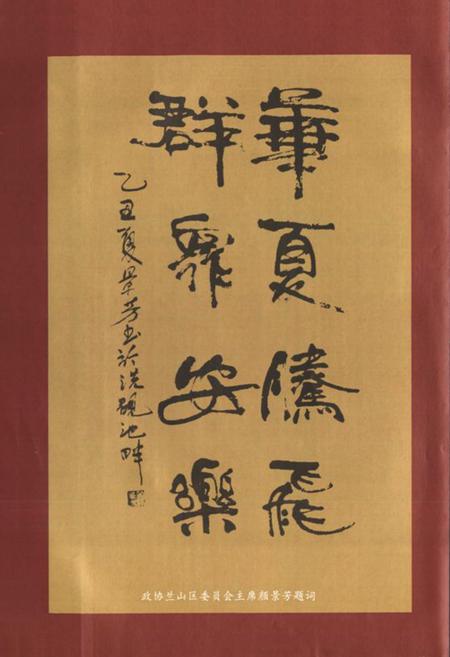 華夏騰飛
群眾安樂
乙丑夏景芳书於洗砚池畔
政协兰山区委员会主席颜景芳题词